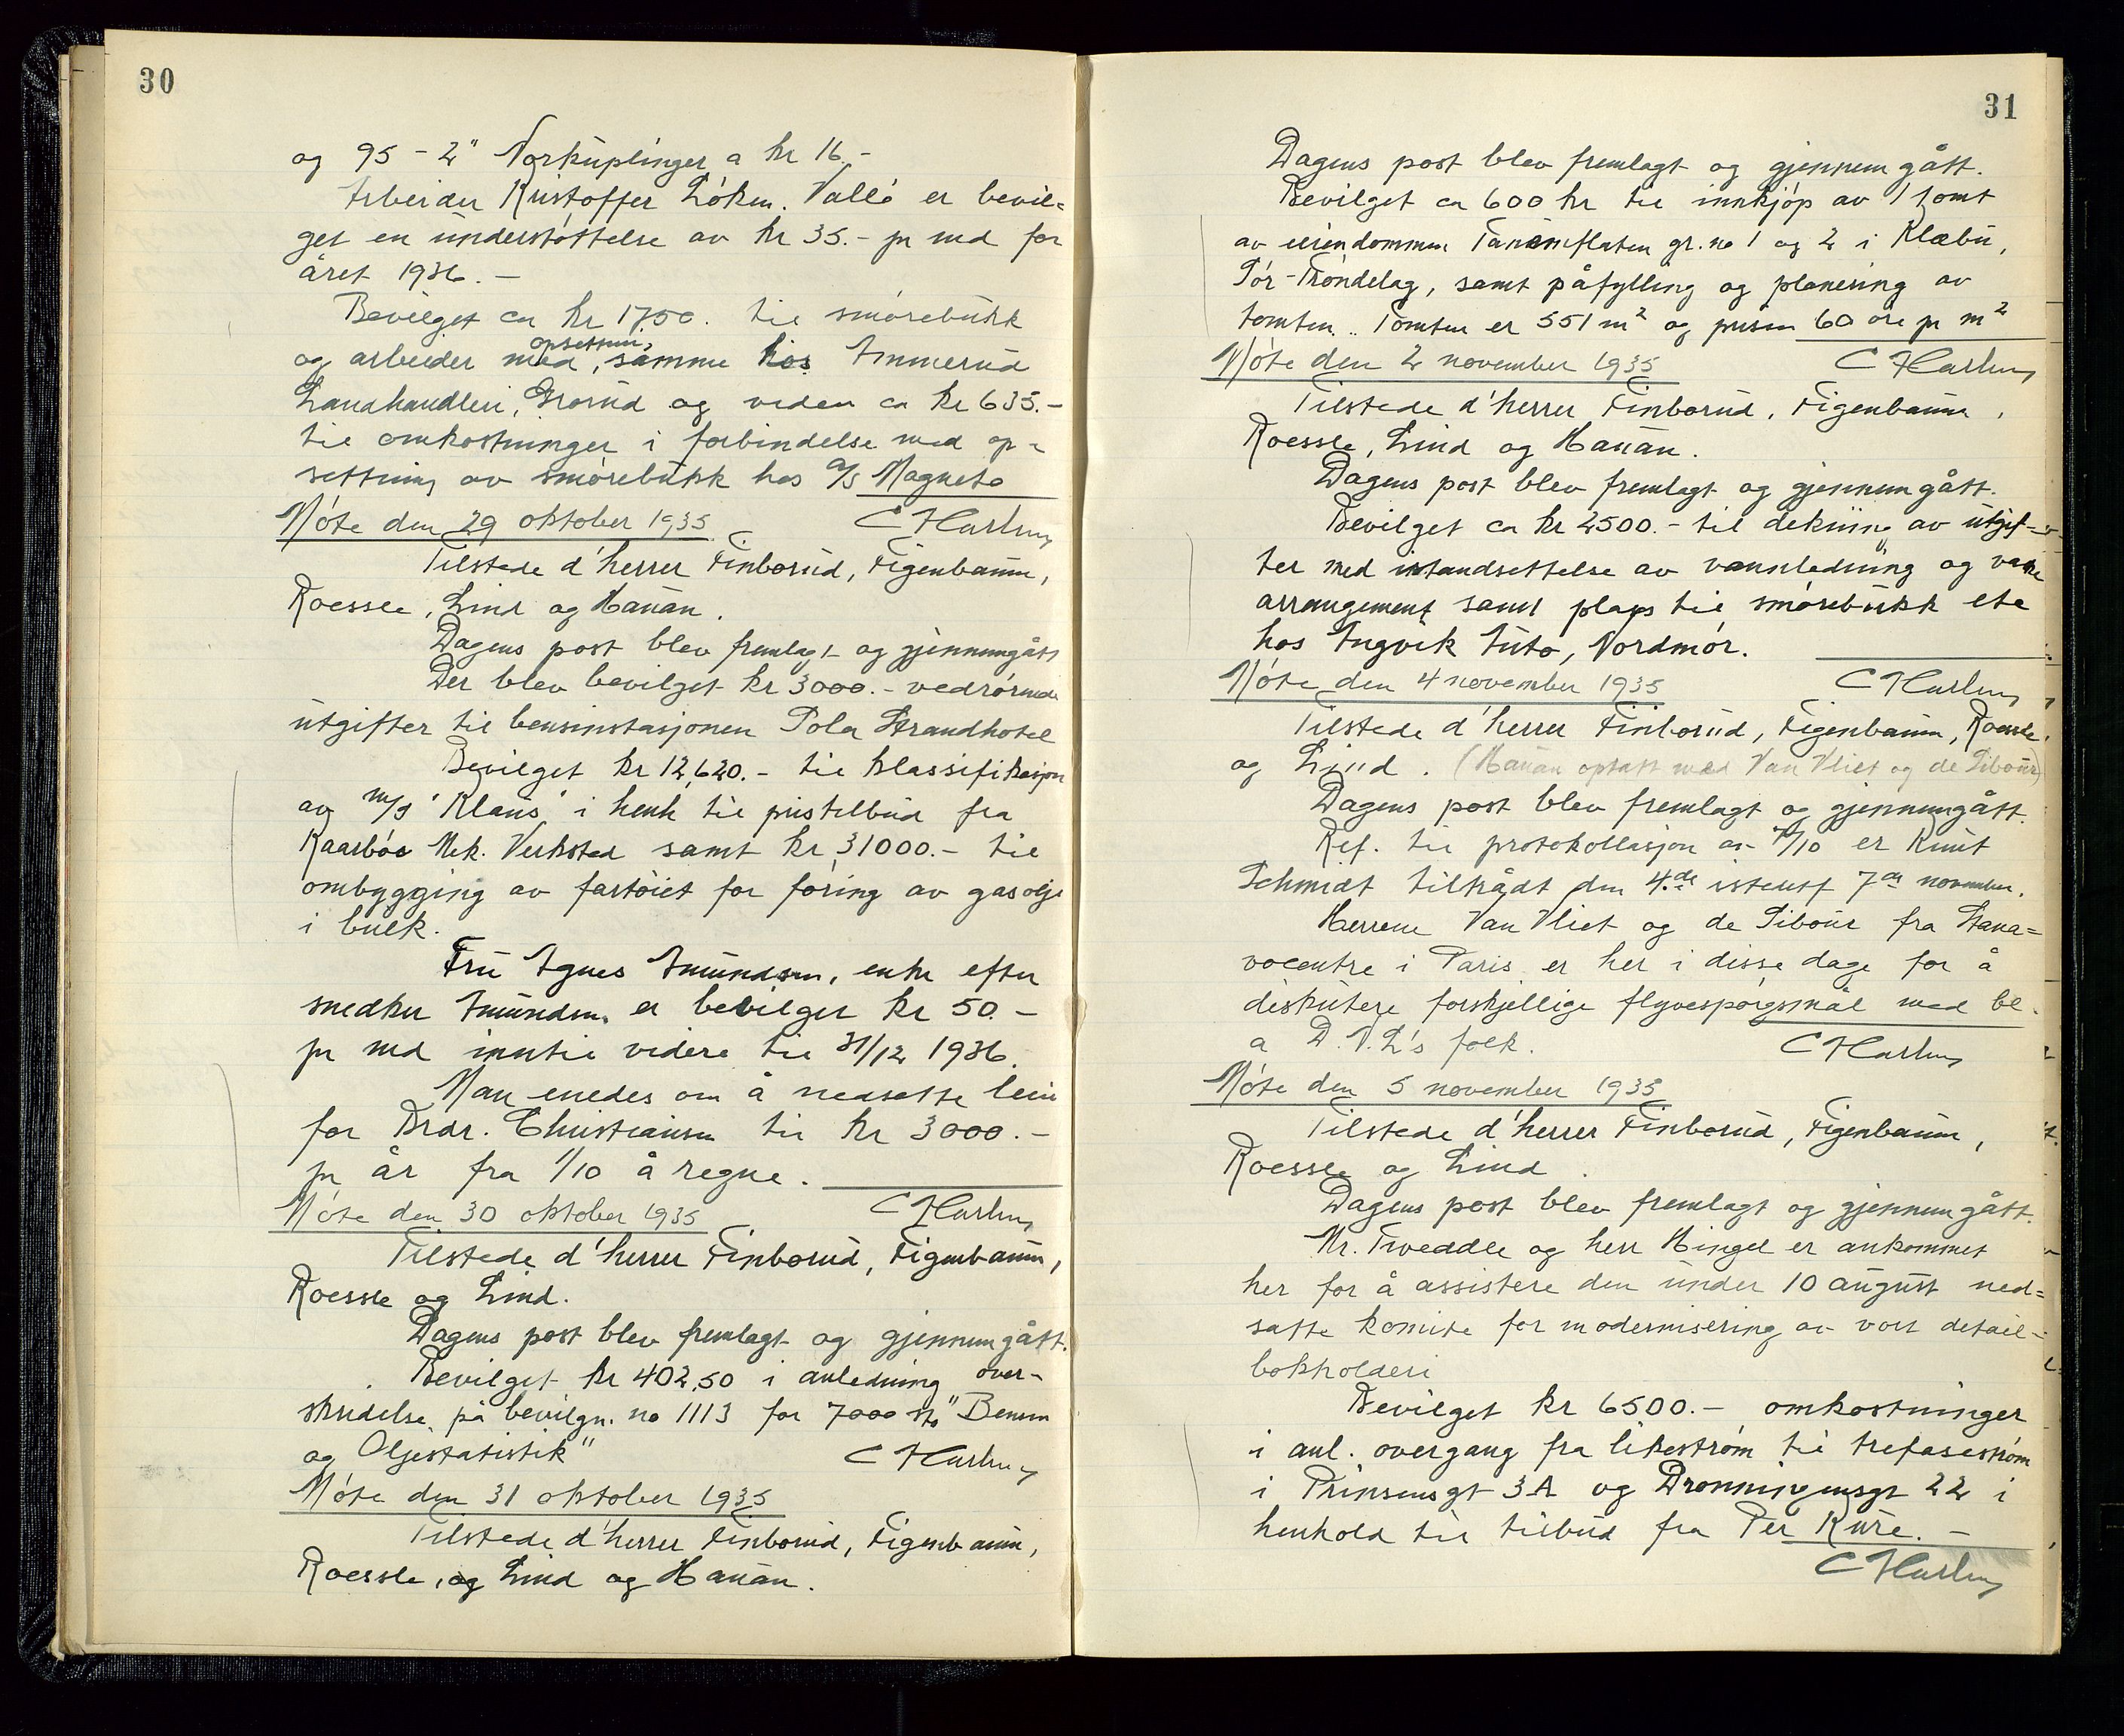 30
og 95 - 2" Norkuplinger a kr 16.-
Arbeider Kristoffer Löken. Vallö er bevil=
get en understöttelse av kr 35.- pr md for
året 1936.-
Bevilget ca kr 1750. til smörebukk
opsettning
og arbeider med, samme hos Ammerud
Landhandleri, Grorud og videre ca kr 635.-
til omkostninger i forbindelse med op=
settning av smörebukk hos A/S Magneto
Möte den 29 oktober 1935
Tilstede d'herrer Finborud, Figenbaum,
Roessle, Lind og Hauan.
Dagens post blev fremlagt og gjennemgått
Der blev bevilget kr 3000.- vedrörende
utgifter til bensinstasjonen Sola Strandhotel
Bevilget kr 12,620.- til klassifikasjon
av m/s "Klaus" i henh til pristilbud fra
Kaarbös Mek. Verksted samt kr 31000.- til
ombygging av fartöiet for föring av gasolje
i bulk.
Fru Agnes Amundsen, enke efter
snedker Amundsen er bevilget kr 50.-
pr md inntil videre til 31/12 1936.
Man enedes om å nedsette leien
for Brdr. Christiansen til kr 3000.-
pr år fra 1/10 å regne.
Möte den 30 oktober 1935
Tilstede d'herrer Finborud, Figenbaum,
Roessle og Lind.
Dagens post blev fremlagt og gjennemgått.
Bevilget kr 402,50 i anledning over-
skridelse på bevilgn. no 1113 for 7000 stk "Bensin
og Oljestatistik"
Möte den 31 oktober 1935
Tilstede d'herrer Finborud, Figenbaum,
Roessle, og Lind og Hauan.
31
Dagens post blev fremlagt og gjennemgått.
Bevilget ca 600 kr til innkjöp av 1 tomt
av eiendommen Tanemflaten gr. no 1 og 2 i Klæbu,
Sör-Tröndelag, samt påfylling og planering av
tomten.. Tomten er 551 m² og prisen 60 öre pr m²
Möte den 2 november 1935
Tilstede d'herrer Finborud, Figenbaum,
Roessle, Lind og Hauan.
Dagens post blev fremlagt og gjennemgått.
Bevilget ca kr 2500.- til dekning av utgif=
ter med istandsettelse av vannledning og vaske
arrangement samt plass til smörebukk etc
hos Ingvik Auto, Nordmör.
Möte den 4 november 1935
Tilstede d'herrer Finborud, Figenbaum, Roessle
og Lind. (Hauan optatt med Van Vliet og de Sibour)
Dagens post blev fremlagt og gjennemgått.
Ref. til protokollasjon av /10 er Knut
Schmidt tiltrådt den 4de istenf 7de november.
Herrene Van Vliet og de Sibour fra Stana=
vocentre i Paris er her i disse dage for å
diskutere forskjellige flyvespörgsmål med bl.
a D.N.L's folk.
Möte den 5 november 1935
Tilstede d'herrer Finborud, Figenbaum,
Roessle og Lind.
Dagens post blev fremlagt og gjennemgått.
Mr. Tweddle og herr Hingel er ankommet
her for å assistere den under 10 august ned=
satte komite for modernisering av vort detail-
bokholderi
Bevilget kr 6500.- omkostninger
i anl. overgang fra likeström til trefaseström
i Prinsensgt 3A og Dronningensgt 22 i
henhold til tilbud fra Per Kure.-